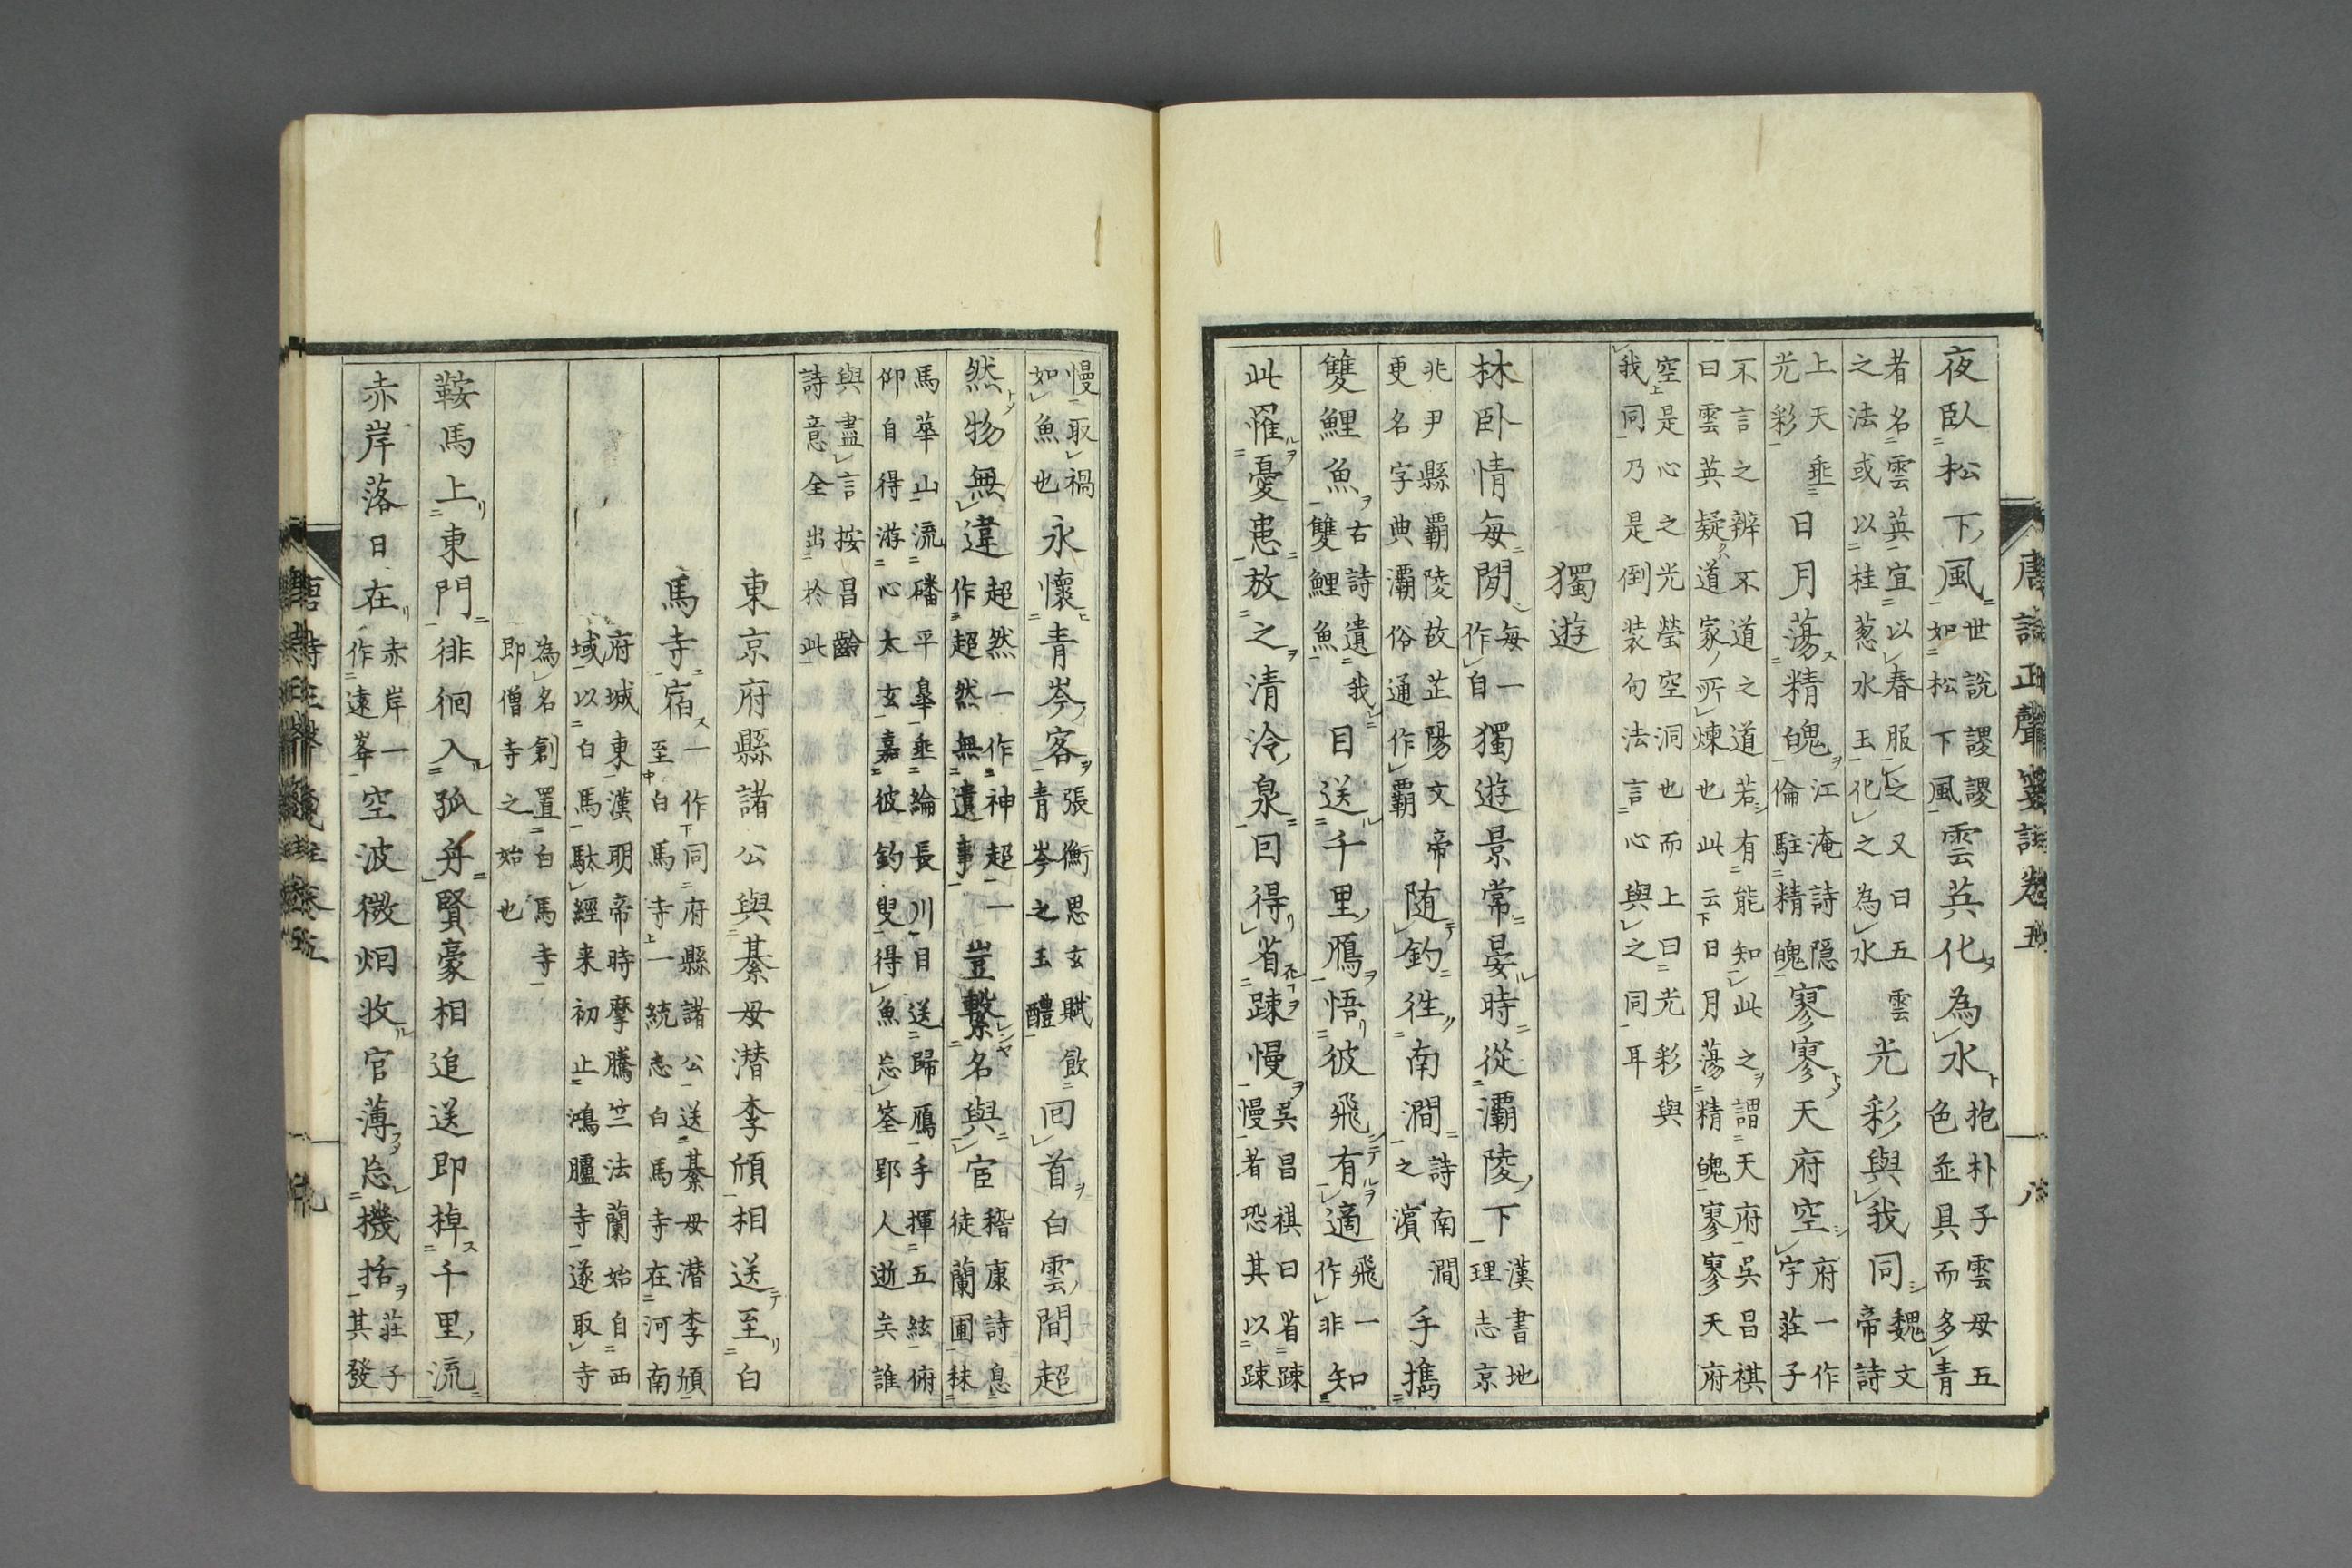 夜臥松下風世說謖謖如松下風雲英化為水抱朴子雲母五色並具而多青
者名雲英宜以春服之又曰五雲之法或以桂葱水玉化之為水光彩與我同魏文帝詩
上天垂光彩日月蕩精魄江淹詩隱倫駐精魄寥寥天府空府一作宇莊子
不言之辨不道之道若有能知此之謂天府吳昌祺曰雲英疑道家所煉也此云日月蕩精魄寥寥天府
空是心之光瑩空洞也而上曰光彩與我同乃是倒装句法言心與之同耳
獨遊
林卧情每閒每一作自獨遊景常晏時從灞陵下漢書地理志京
兆尹縣霸陵故芷陽文帝更名字典灞俗通作霸随釣徃南澗詩南澗之濵手攜
雙鯉魚古詩遺我雙鯉魚目送千里鴈悟彼飛有適飛一作非知
此罹憂患放之清泠泉回得省踈慢吳昌祺曰省踈慢者恐其以踈
慢取禍如魚也永懷青岑客張衡思玄賦飲青岑之玉醴回首白雲間超
然物無違超然一作神超一作超然無遺事豈繫名與宦嵇康詩息徒蘭圃秣
馬華山流磻平皋垂綸長川目送歸鴈手揮五絃俯仰自得游心太玄嘉彼釣叟得魚忘筌郢人逝矣誰
與盡言按昌齡詩意全出於此
東京府縣諸公與綦毋潜李頎相送至白
馬寺宿一作同府縣諸公送綦毋潜李頎至白馬寺一統志白馬寺在河南
府城東漢明帝時摩騰竺法蘭始自西域以白馬駄經来初止鴻臚寺遂取寺
為名創置白馬寺即僧寺之始也
鞍馬上東門徘徊入孤舟賢豪相追送即掉千里流
赤岸落日在赤岸一作遠峯空波微烟收官薄忘機括莊子其發
唐詩正聲箋註卷五
八
九